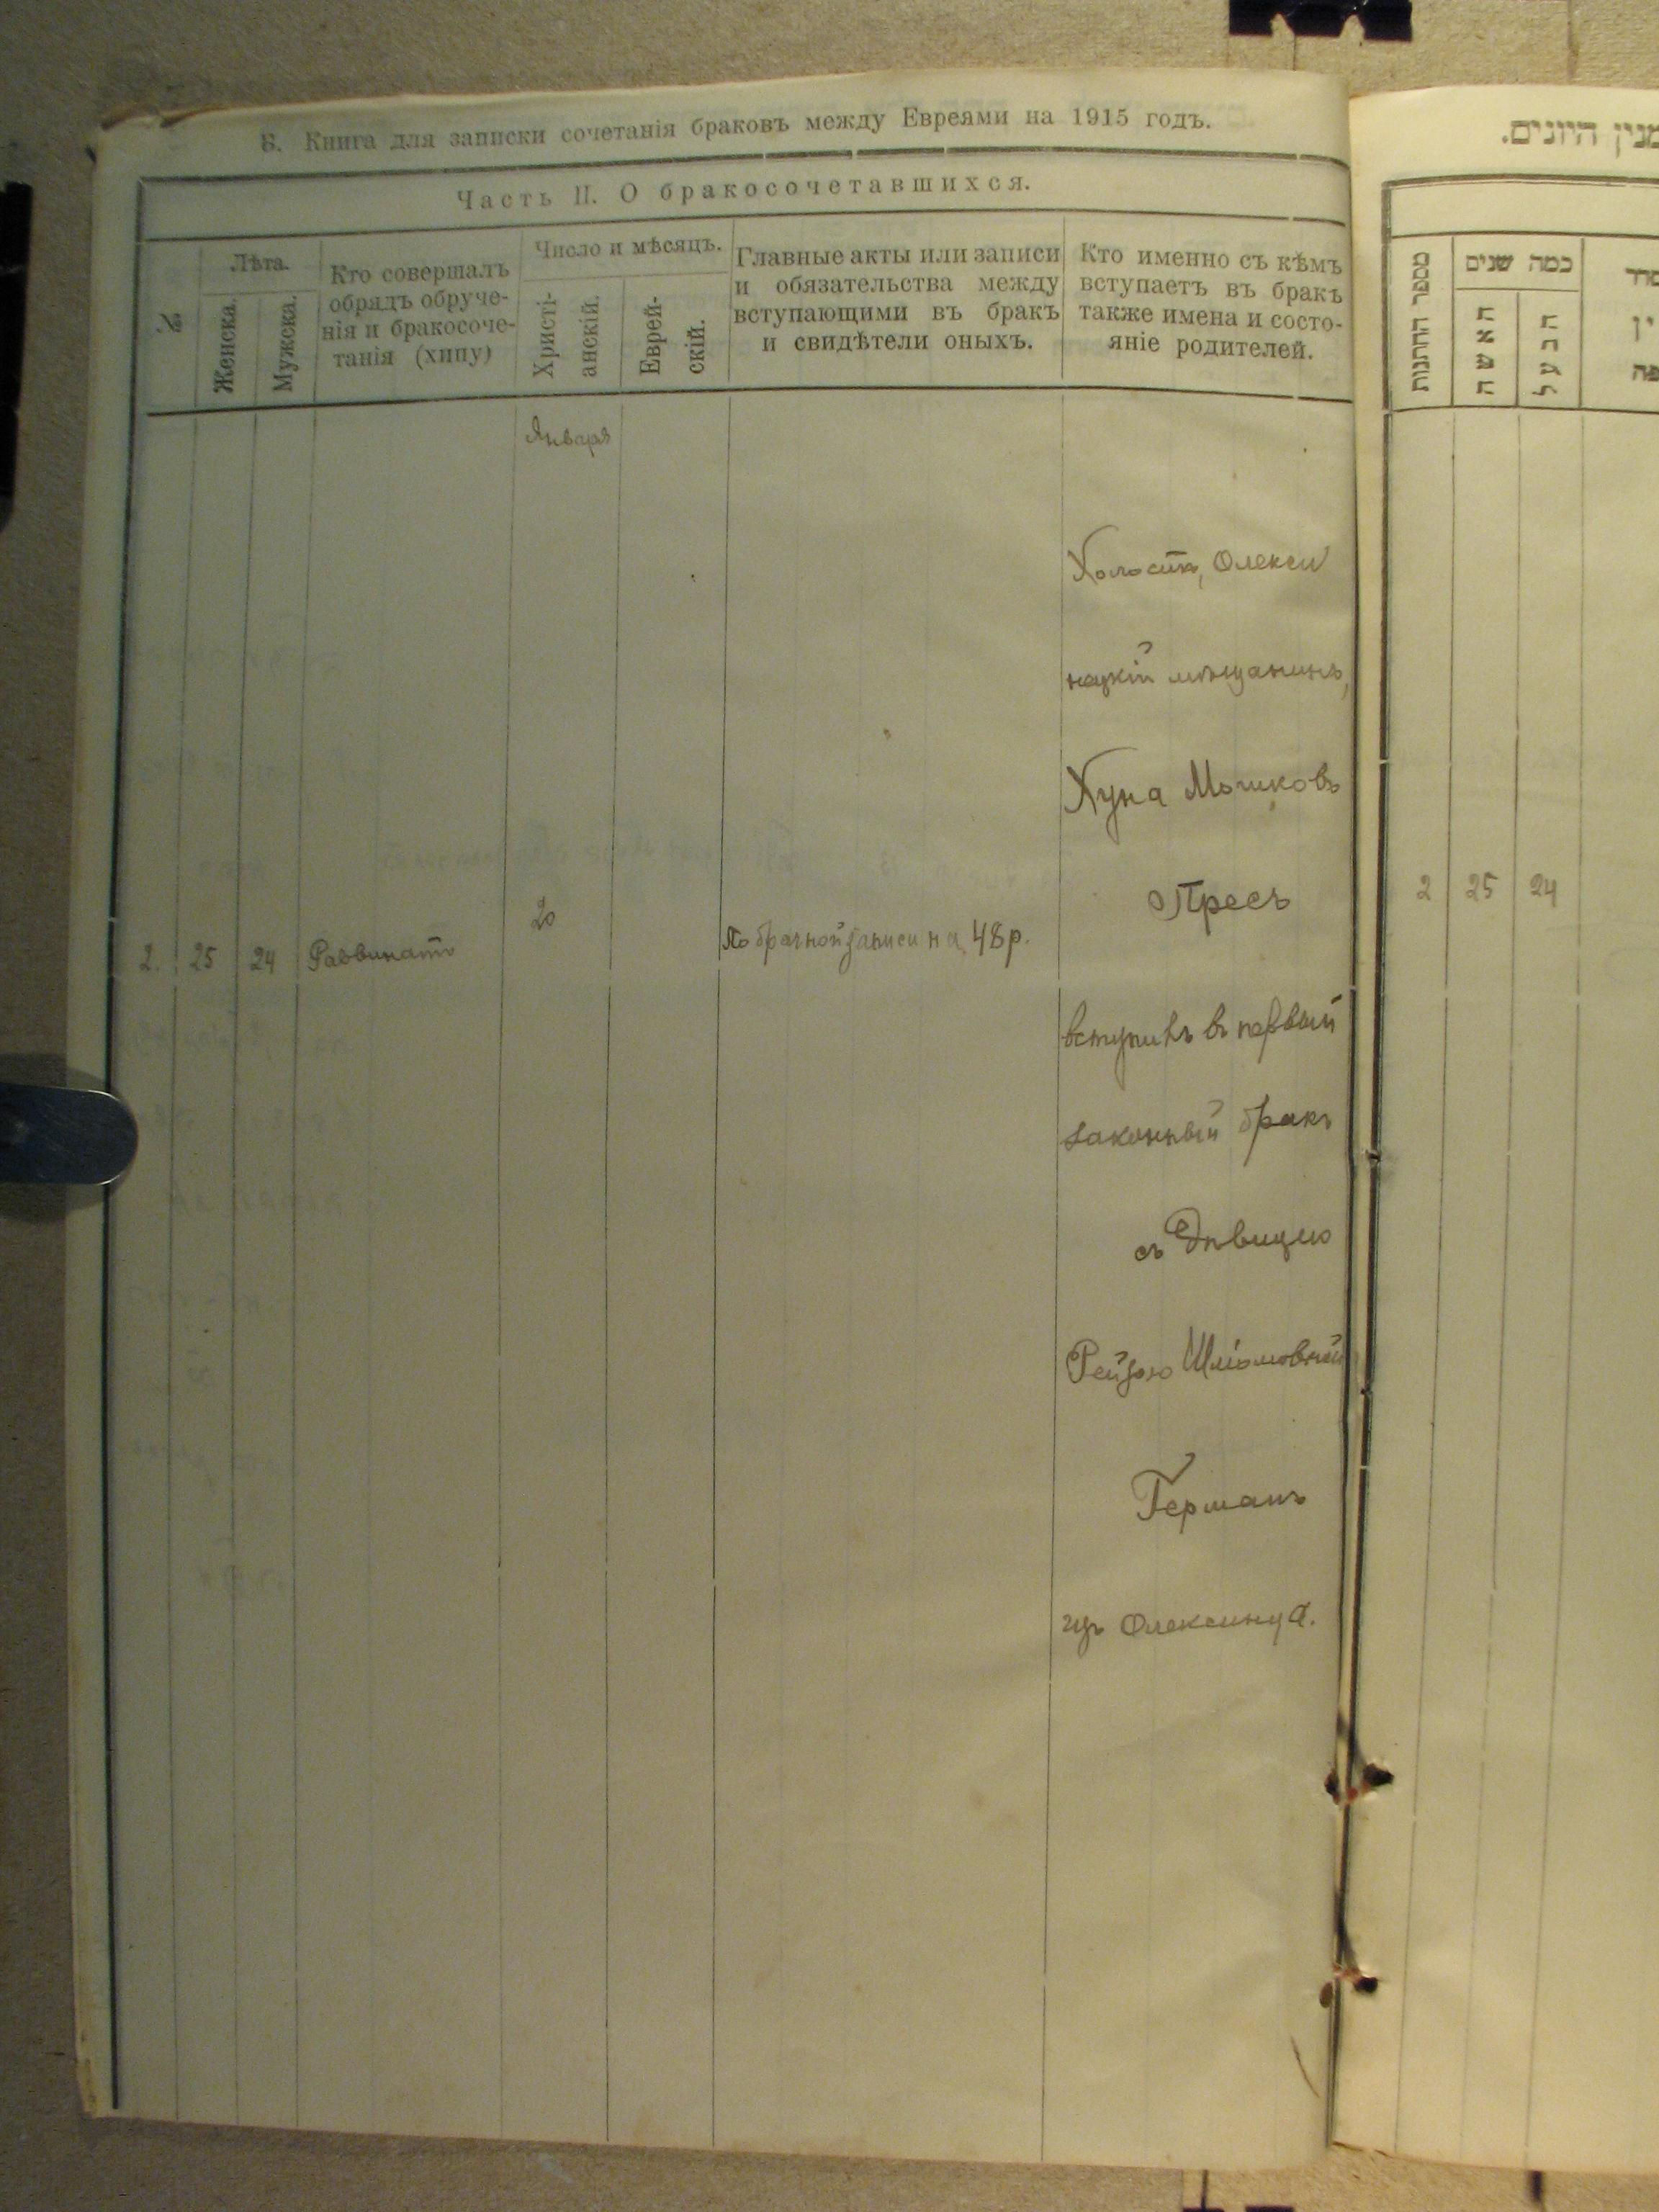 Б. Книга для записки сочетанія браковъ между Евреями на 1915 годъ.
Часть II. О бракосочетавшихся.
№
Лѣта.
Женска.
Мужска.
Кто совершалъ
обрядъ обруче-
нія и бракосоче-
танія (хипу)
Число и мѣсяцъ.
Христі-
анскій.
Еврей-
скій.
Главные акты или записи
и обязательства между
вступающими въ бракъ
и свидѣтели оныхъ.
Кто именно съ кѣмъ
вступаетъ въ бракъ
также имена и состо-
яніе родителей.
Января
2. 25 24 Раввинатъ 20 По брачной записи на 48 р.
Холостъ, Олекси
нецкій мѣщанинъ,
Хуна Мошковъ
Пресъ
вступилъ въ первый
законный бракъ
съ дѣвицею
Рейзею Шліомовной
Германъ
изъ Олексинца.
מנין היונים.
מספר החתנות
כמה שנים
האשה
הבעל
סדר
ין
פה
2 25 24